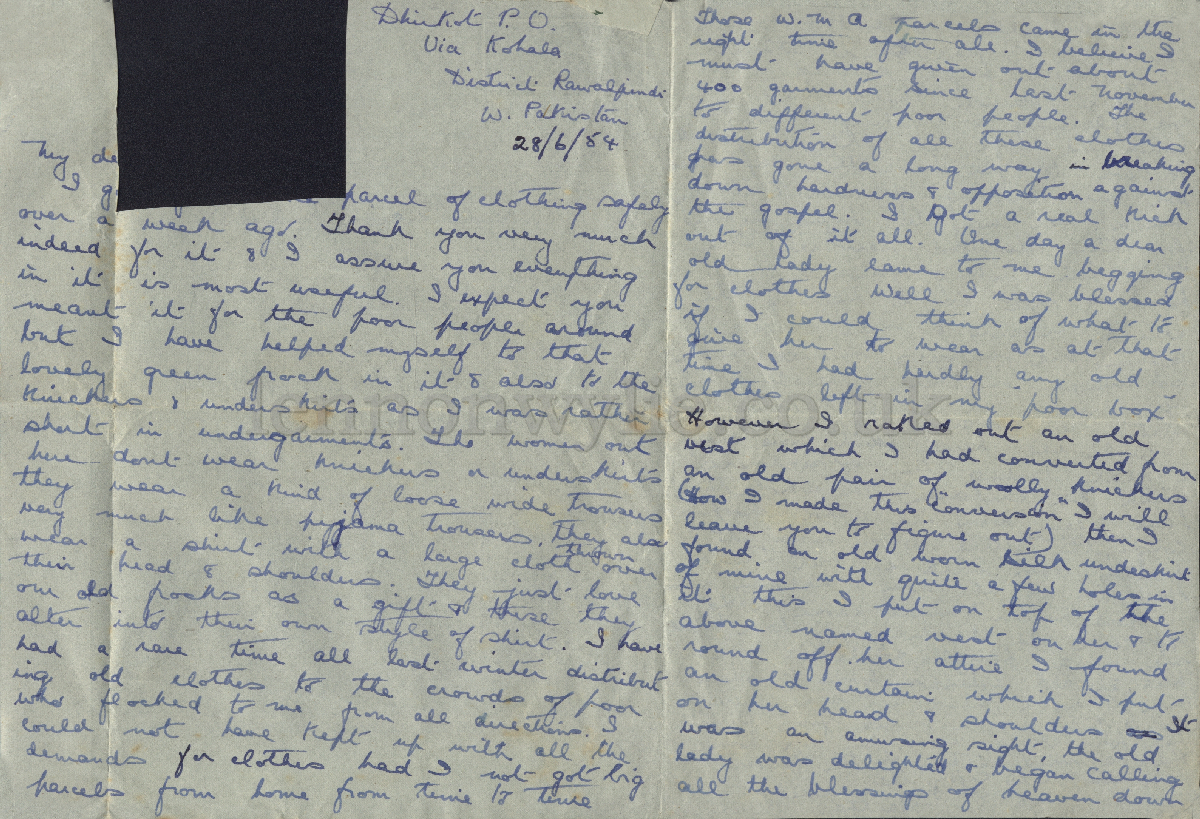 Dhirkot P.O.
Via Kohala
District Rawalpindi
W. Pakistan
28/6/54
My de
I g parcel of clothing safely
over a week ago. Thank you very much
indeed for it & I assure you everything
in it is most useful. I expect you
meant it for the poor people around
but I have helped myself to that
lovely green frock in it & also to the
knickers & underskirts as I was rather
short in undergarments. The women out
here dont wear knickers or underskirts
they wear a kind of loose wide trousers
very much like pyjama trousers, they also
wear a shirt with a large cloth thrown over
their head & shoulders. They just love
our old frocks as a gift & these they
alter into their own style of shirt. I have
had a rare time all last winter distribut
ing old clothes to the crowds of poor
who flocked to me from all directions. I
could not have kept up with all the
demands for clothes had I not got big
parcels from home from time to time
Those W.M.A. parcels came in the
right time after all. I believe I
must have given out about
400 garments since last November
to different poor people. The
distribution of all these clothes
has gone a long way in breaking
down hardness & opposition against
the gospel. I got a real kick
out of it all. One day a dear
old lady came to me begging
for clothes well I was blessed
if I could think of what to
give her to wear as at that
time I had hardly any old
clothes left in my "poor box"
However I raked out an old
vest which I had converted from
an old pair of woolly knickers
(How I made this "conversion" I will
leave you to figure out) then I
found an old worn silk underskirt
of mine with quite a few holes in
it this I put on top of the
above named vest on her & to
round off her attire I found
an old curtain which I put
on her head & shoulders It
was an amusing sight, the old
lady was delighted & began calling
all the blessings of heaven down
lennonwylie.co.uk